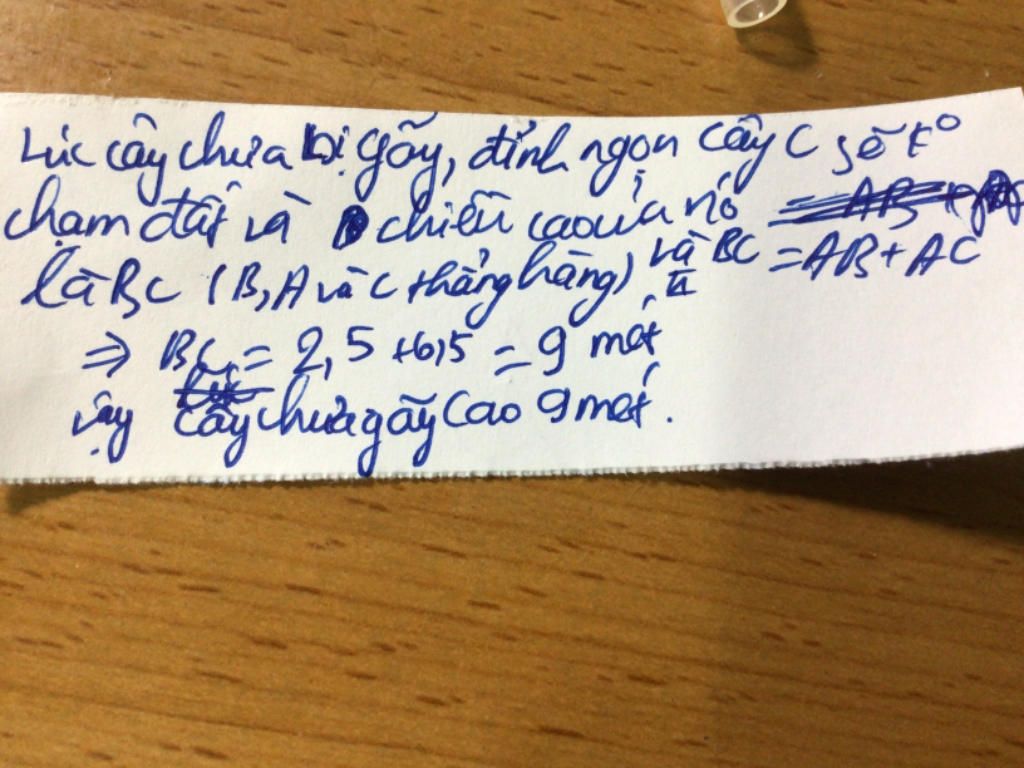 Lúc cây chưa bị gãy, đỉnh ngọn cây C sẽ k°
chạm đất và chiều cao của nó
là BC (B, A và C thẳng hàng) và BC = AB + AC
=> BC = 2,5 + 6,5 = 9 mét
vậy cây chưa gãy cao 9 mét.